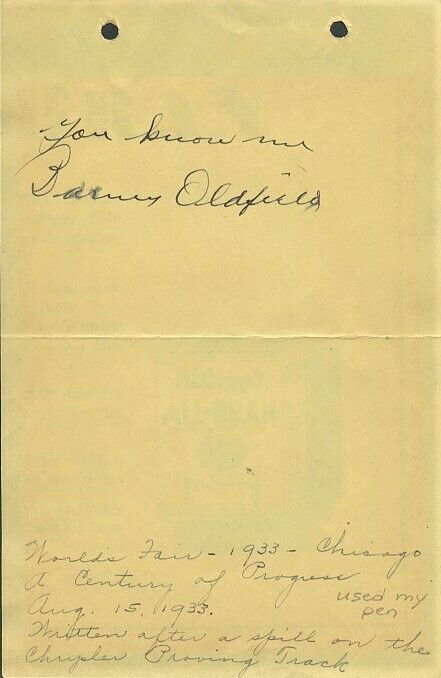 You know me
Barney Oldfield
World's Fair - 1933 - Chicago
A Century of Progress
Aug. 15, 1933.
used my
pen
Written after a spill on the
Chrysler Proving Track